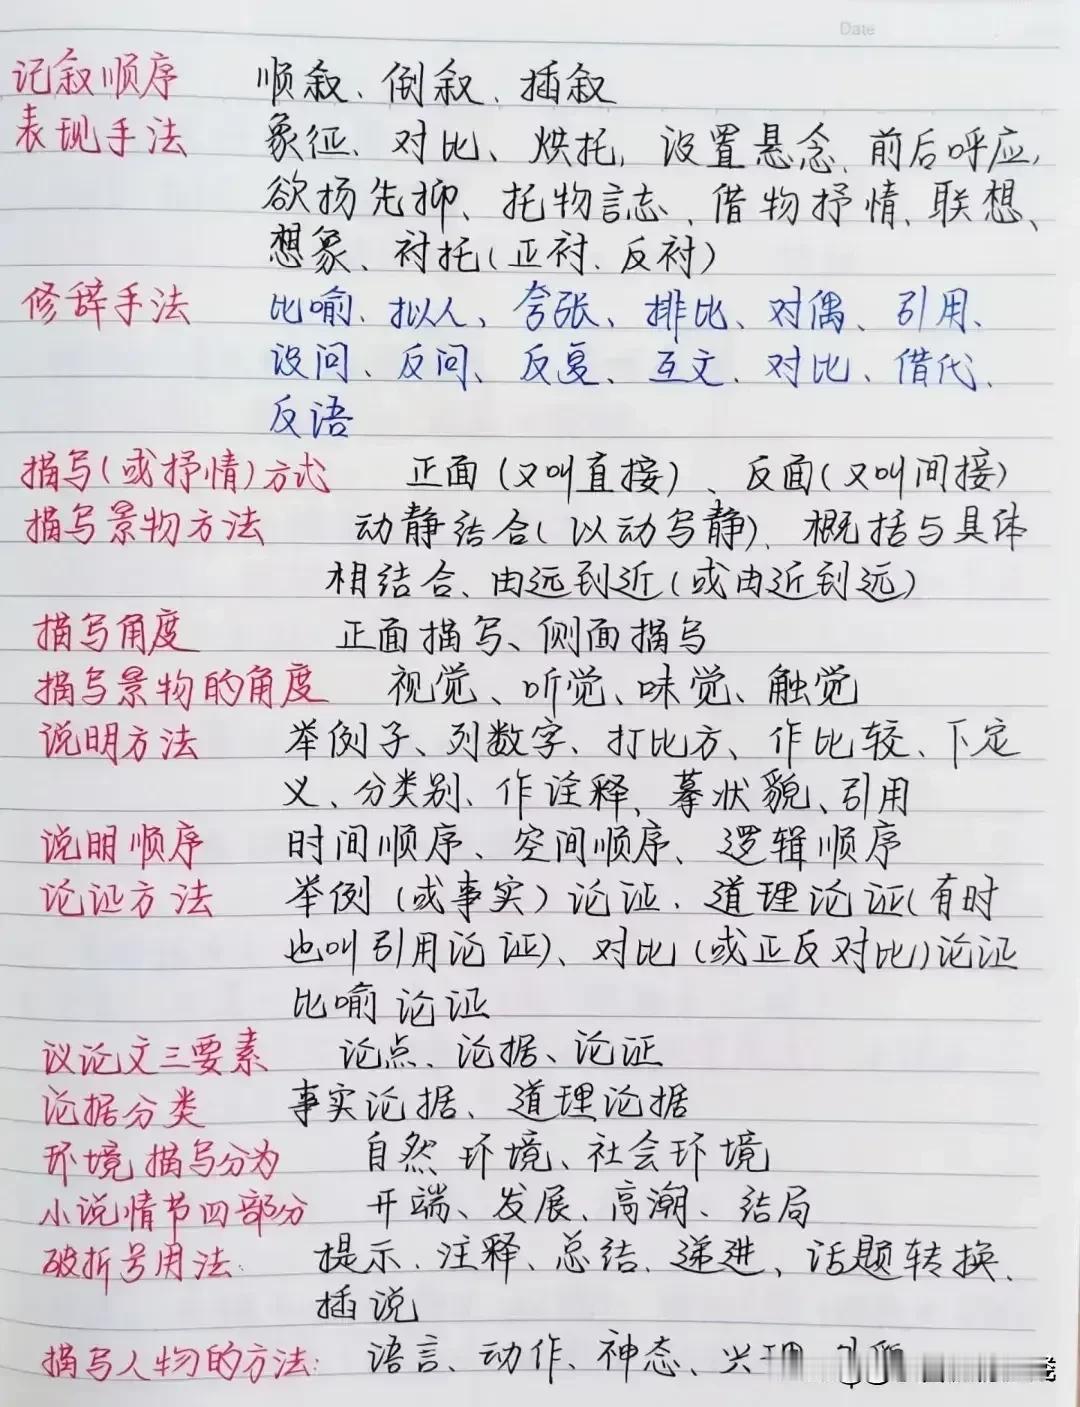 Date
记叙顺序 顺叙、倒叙、插叙
表现手法 象征、对比、烘托、设置悬念、前后呼应,
欲扬先抑、托物言志、借物抒情、联想、
想象、衬托(正衬、反衬)
修辞手法 比喻、拟人、夸张、排比、对偶、引用、
设问、反问、反复、互文、对比、借代、
反语
描写(或抒情)方式 正面(又叫直接)、反面(又叫间接)
描写景物方法 动静结合(以动写静)、概括与具体
相结合、由远到近(或由近到远)
描写角度 正面描写、侧面描写
描写景物的角度 视觉、听觉、味觉、触觉
说明方法 举例子、列数字、打比方、作比较、下定
义、分类别、作诠释、摹状貌、引用
说明顺序 时间顺序、空间顺序、逻辑顺序
论证方法 举例(或事实)论证、道理论证(有时
也叫引用论证)、对比(或正反对比)论证
比喻论证
议论文三要素 论点、论据、论证
论据分类 事实论据、道理论据
环境描写分为 自然环境、社会环境
小说情节四部分 开端、发展、高潮、结局
破折号用法: 提示、注释、总结、递进、话题转换、
插说
描写人物的方法: 语言、动作、神态、